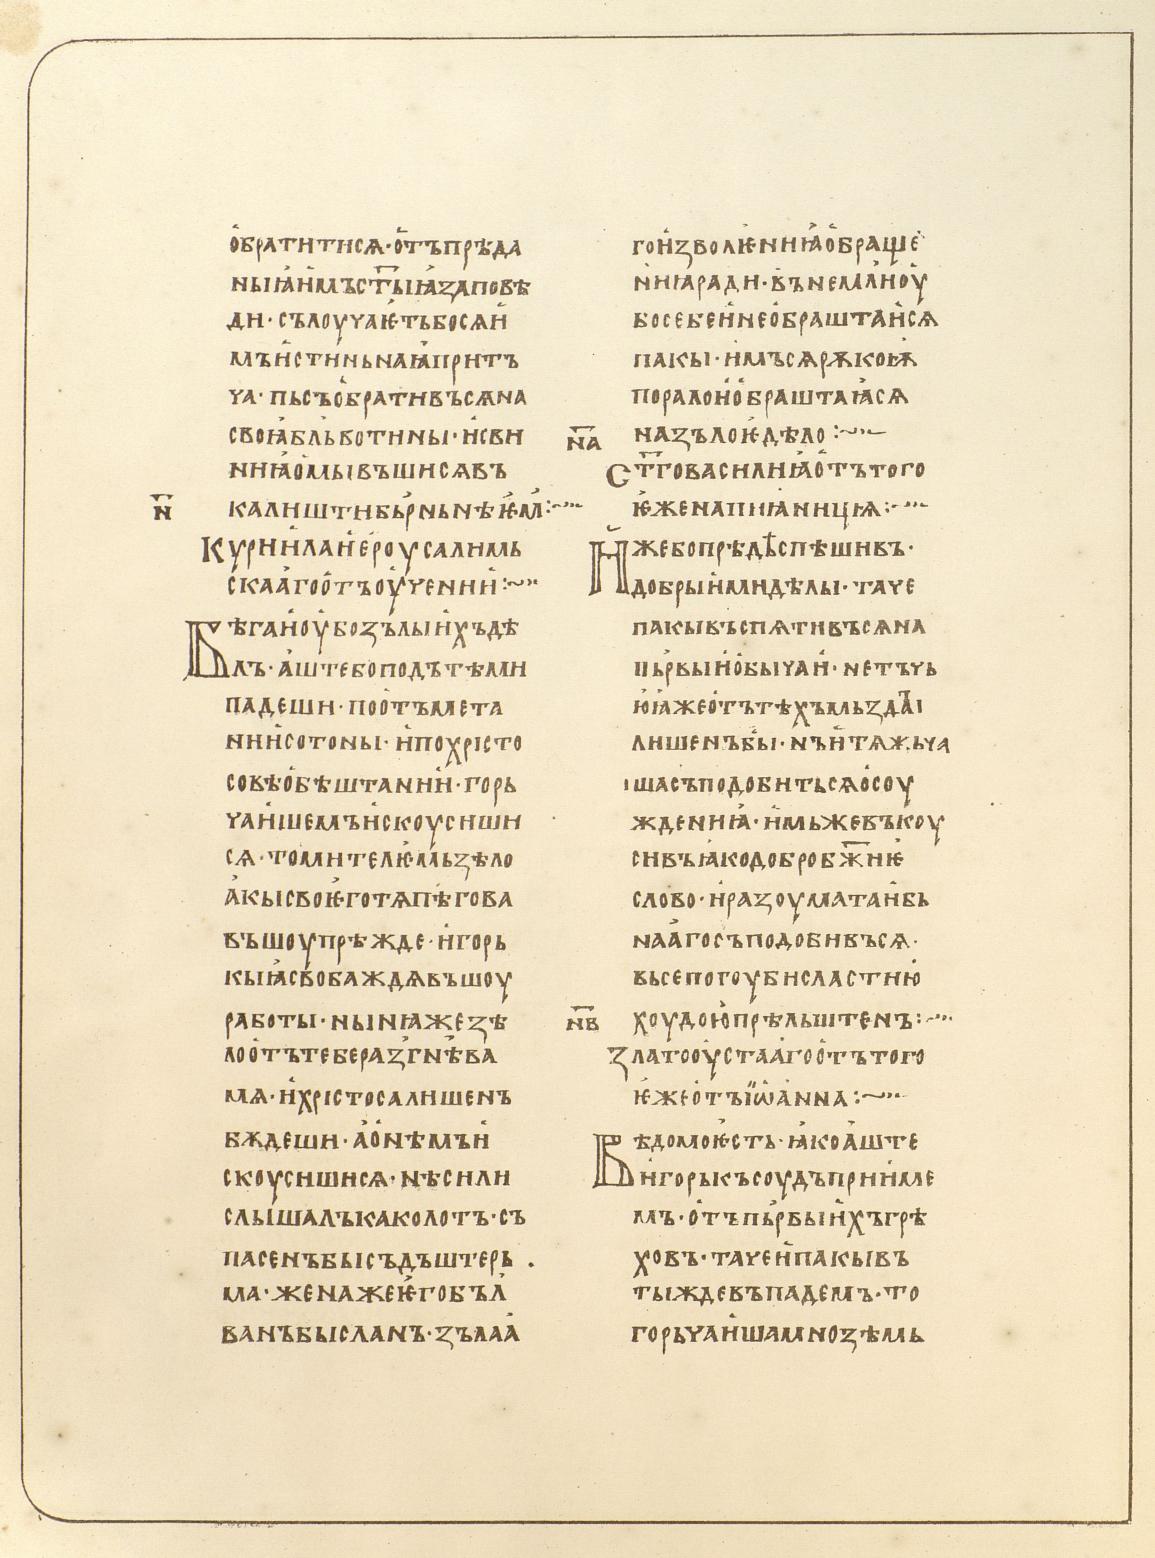 обратитисѧ · отъ прѣда
ныꙗ имъ ст҃ыꙗ заповѣ
ди · сълоучаѥть бо сѧ и
мъ истиньнаꙗ прит҄ъ
ча · пьсъ обративъ сѧ на
своꙗ бльвотины · и сви
ниꙗ омывъши сѧ въ
н҃
калищи бьрньнѣѥмь :~
Курила иероусалимь
скааго отъ оучении :~
Бѣгаи оубо зълыихъ дѣ
лъ · аште бо подъ тѣми
падеши · по отъмета
нии сотоны · и по христо
совѣ обѣштании · горь
чаишемъ искоусиши
сѧ · томителѥмь зѣло
акы своѥго тѧпѣгова
въшоу прѣжде · и горь
кыꙗ свобаждѧвъшоу
работы · нынꙗ же зѣ
ло отъ тебе разгнѣва
мѧ · и христоса лишенъ
бѫдеши · а онѣмъ и
скоусиши сѧ · нѣси ли
слышалъ како лотъ · съ
пасенъ бы съ дъштерь
ма · жена же ѥго бъл
ванъ бы сланъ · зълаа
го изволѥниꙗ обраще
ниꙗ ради · вънемли оу
бо себе и не обраштаи сѧ
пакы · имъ сѧ рѫкоѭ
по рало и обраштаꙗ сѧ
н҃а
на зълоѥ дѣло :~
Ст҃го василиꙗ отъ того
ѥже на пиꙗницѩ :~
Иже бо прѣдъспѣшивъ ·
добрыими дѣлы · таче
пакы въспѧтивъ сѧ на
пьрвыи обычаи · не тъчь
ю ꙗже отъ тѣхъ мьзды
лишенъ бы · нъ и тѧжьча
иша съподобить сѧ осоу
ждениꙗ · имьже въкоу
сивъ ꙗко добро бж҃иѥ
слово · и разоумъ таинь
нааго съподобивъ сѧ ·
вьсе погоуби сластию
н҃в
хоудою прѣльштенъ :~
Златооустааго отъ того
ѥже отъ иѡанна :~
Вѣдомо ѥсть · ꙗко аште
и горькъ соудъ приима
мъ · отъ пьрвыихъ грѣ
ховъ · таче и пакы въ
ты жде въпадемъ · то
горьчаиша мнозѣмь